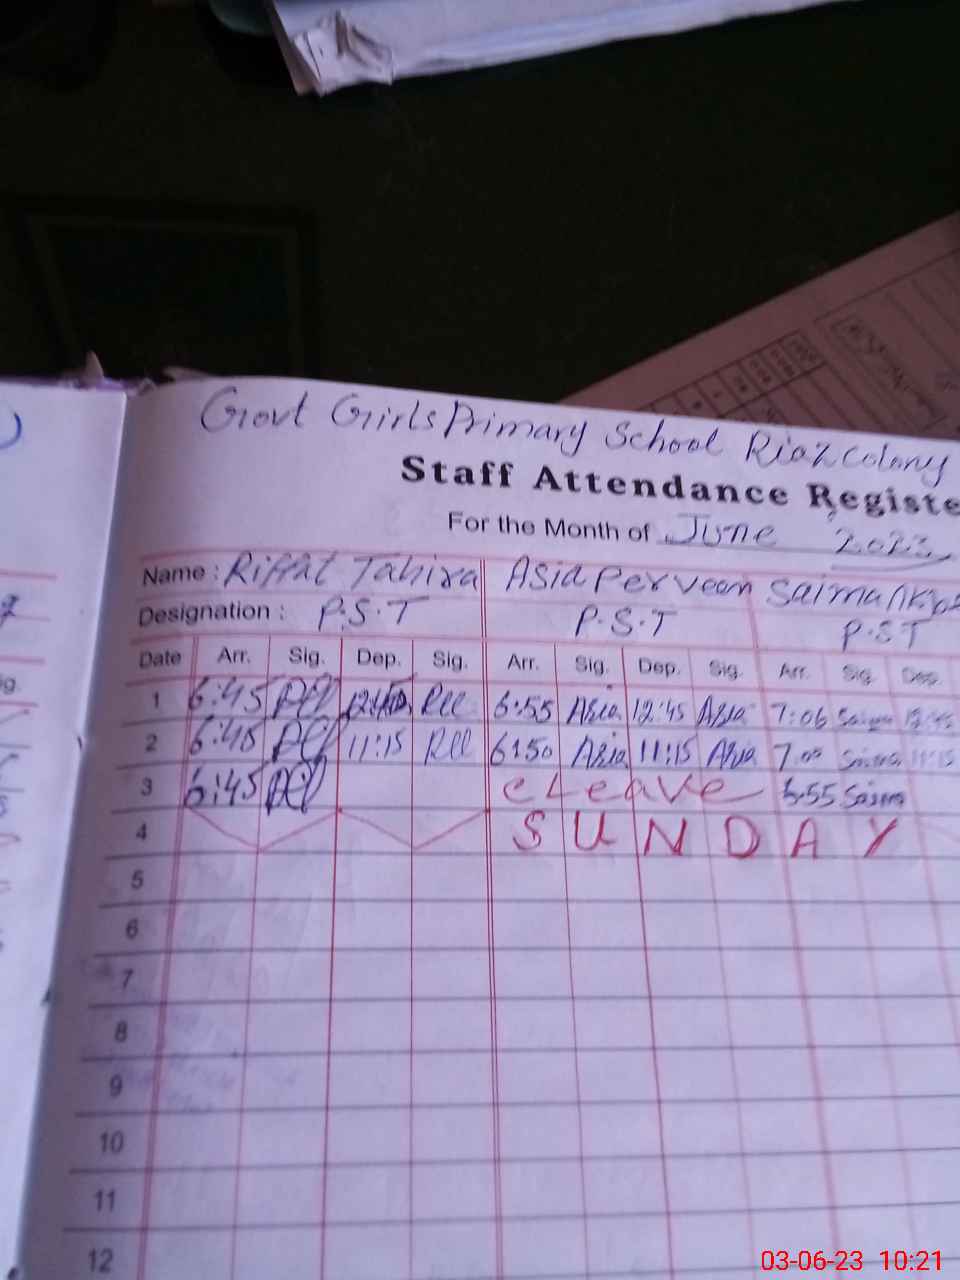 Govt Girls Primary School Riaz Colony
Staff Attendance Registe
For the Month of June 2023
Name : Riffat Tahira Asia Perveen Saima
Designation : P.S.T P.S.T P.S.T
Date Arr. Sig. Dep. Sig. Arr. Sig. Dep. Sig. Arr. Sig. Dep.
1 6:45 6:55 Asia 12:45 Asia 7:06 Saima 12:45
2 6:45 11:15 6:50 Asia 11:15 Asia 7:00 Saima 11:15
3 6:45 cLeave 6:55 Saima
4 SUNDAY
5
6
7
8
9
10
11
12
03-06-23 10:21